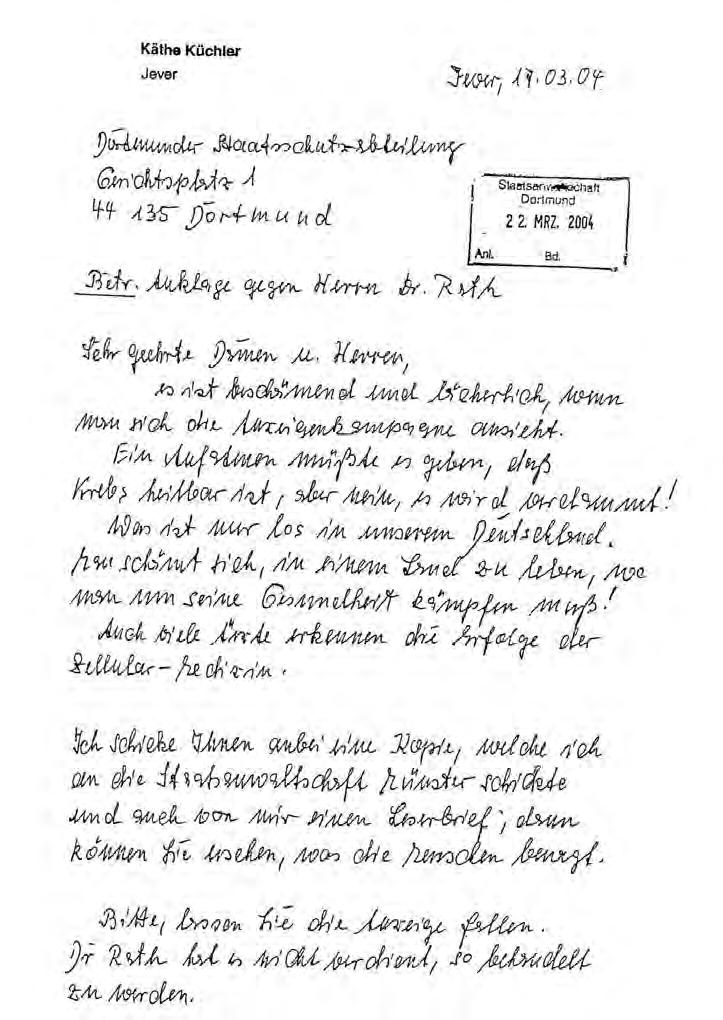 Käthe Küchler
Jever
Jever, 17.03.04
Dortmunder Staatsschutzabteilung
Gerichtsplatz 1
44 135 Dortmund
Staatsanwaltschaft
Dortmund
22. MRZ. 2004
Anl. Bd.
Betr. Anklage gegen Herrn Dr. Rath
Sehr geehrte Damen u. Herren,
es ist beschämend und lächerlich, wenn
man sich die Anzeigenkampagne ansieht.
Ein Aufatmen müßte es geben, daß
Krebs heilbar ist, aber nein, es wird verdammt!
Was ist nur los in unserem Deutschland.
Man schämt sich, in einem Land zu leben, wo
man um seine Gesundheit kämpfen muß!
Auch viele Ärzte erkennen die Erfolge der
Zellular-Medizin.
Ich schicke Ihnen anbei eine Kopie, welche ich
an die Staatsanwaltschaft Münster schickte
und auch von mir einen Leserbrief, dann
können Sie ersehen, was die Menschen bewegt.
Bitte, lassen Sie die Anzeige fallen.
Dr Rath hat es nicht verdient, so behandelt
zu werden.